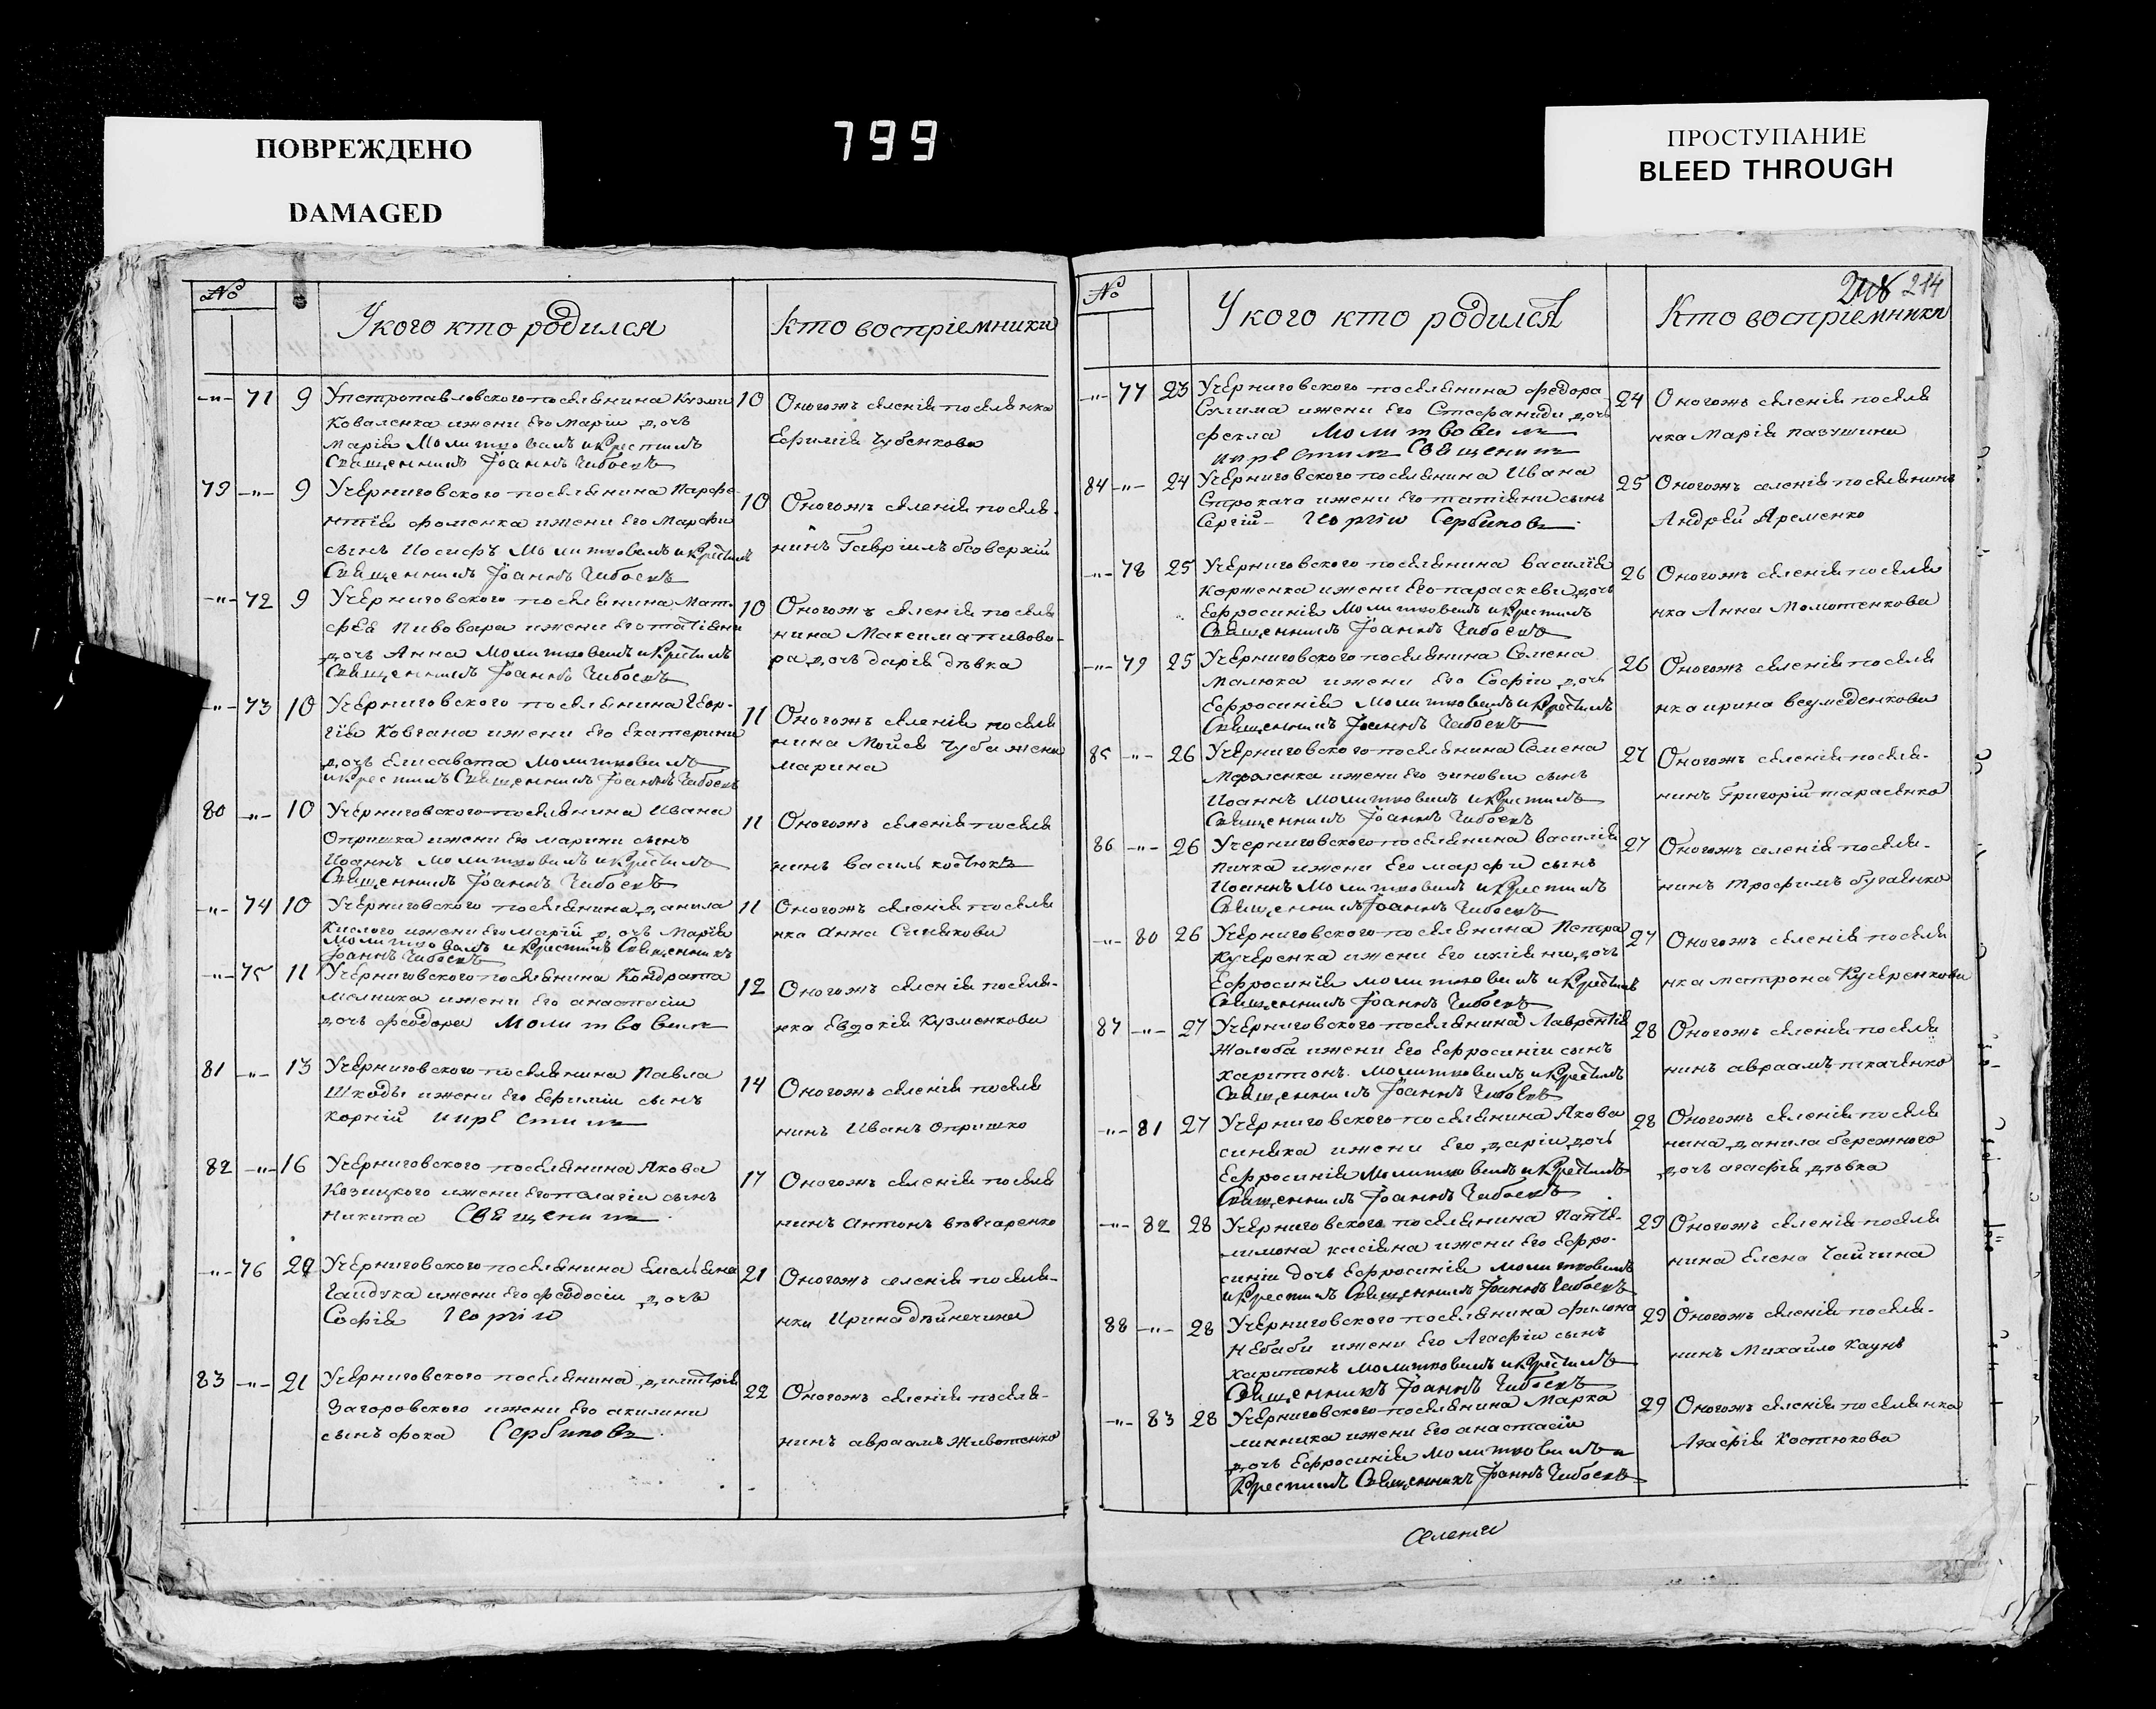 ПОВРЕЖДЕНО
DAMAGED
799
ПРОСТУПАНИЕ
BLEED THROUGH
№
У кого кто родился
Кто воспріемники
-"- 71 9 У петропавловского поселянина Кузми
Коваленка и жени его Маріи дочь
Марія Молитвовалъ и Крестилъ
Священникъ Іоаннъ
10 Оногожъ селенія поселянка
Ефимія Чубенкова
79 -"- 9 У черниговского поселянина Парфе
нтія Фоменка и жени его Марфи
сынъ Иосифъ Молитвовалъ и Крестилъ
Священникъ Іоаннъ
10 Оногожъ селенія поселя-
нинъ Гавріилъ
-"- 72 9 У черниговского поселянина Мат-
фея Пивовара и жени его татіяни
дочь Анна Молитвовалъ и Крестилъ
Священникъ Іоаннъ
10 Оногожъ селенія поселя
нина Максима пивова-
ра дочь дарія дѣвка
-"- 73 10 У черниговского поселянина Геор-
гія Ковгана и жени его Екатерини
дочь Елисавета Молитвовалъ
и Крестилъ Священникъ Іоаннъ
11 Оногожъ селенія поселя
нина Мойсея Чуба жена
марина
80 -"- 10 У черниговского поселянина Ивана
Опришка и жени его марини сынъ
Иоаннъ молитвовалъ и Крестилъ
Священникъ Іоаннъ
11 Оногожъ селенія поселя
нинъ василь костюкъ
-"- 74 10 У черниговского поселянина данила
Кислого и жени его маріи дочь Марія
Молитвовалъ и Крестилъ Священникъ
Іоаннъ
11 Оногожъ селенія поселя
нка Анна Синякова
-"- 75 11 У черниговского поселянина Кондрата
мелника и жени его анастасіи
дочь феодора молитвовалъ
12 Оногожъ селенія поселя-
нка Евдокія Кузменкова
81 -"- 13 У черниговского поселянина Павла
Шкоды и жени его Ефиміи сынъ
Корній и крестилъ
14 Оногожъ селенія поселя
нинъ Иванъ опришко
82 -"- 16 У черниговского поселянина Якова
Козицкого и жени его пелагіи сынъ
Никита Священникъ
17 Оногожъ селенія поселя
нинъ Антонъ
-"- 76 20 У черниговского поселянина Емельяна
Гайдука и жени его феодосіи дочь
Софія Георгій
21 Оногожъ селенія поселя-
нка Ирина
83 -"- 21 У черниговского поселянина димитрія
Загоровского и жени его акилини
сынъ фока Сербиновъ
22 Оногожъ селенія поселя-
нинъ авраамъ Животенко
№
214
У кого кто родился
Кто воспріемники
-"- 77 23 У черниговского поселянина федора
Сулима и жени его Стефаниди дочь
фекла Молитвовалъ
и крестилъ Священникъ
24 Оногожъ селенія поселя
нка Марія
84 -"- 24 У черниговского поселянина Ивана
Строкача и жени его татіяни сынъ
Сергій - Георгій Сербиновъ
25 Оногожъ селенія поселянинъ
Андрей Яременко
-"- 78 25 У черниговского поселянина василія
Корженка и жени его параскеви дочь
Ефросинія Молитвовалъ и Крестилъ
Священникъ Іоаннъ
26 Оногожъ селенія поселя
нка Анна Момотенкова
-"- 79 25 У черниговского поселянина Семена
Малюка и жени его Софіи дочь
Ефросинія Молитвовалъ и Крестилъ
Священникъ Іоаннъ
26 Оногожъ селенія поселя
нка ирина
85 -"- 26 У черниговского поселянина Семена
и жени его зиновіи сынъ
Иоаннъ молитвовалъ и Крестилъ
Священникъ Іоаннъ
27 Оногожъ селенія поселя-
нинъ Григорій тарасенко
86 -"- 26 У черниговского поселянина василія
и жени его марфи сынъ
Иоаннъ Молитвовалъ и Крестилъ
Священникъ Іоаннъ
27 Оногожъ селенія поселя-
нинъ трофимъ бугаенко
-"- 80 26 У черниговского поселянина Петра
Кучеренка и жени его дочь
Ефросинія молитвовалъ и Крестилъ
Священникъ Іоаннъ
27 Оногожъ селенія поселя
нка матрона Кучеренкова
87 -"- 27 У черниговского поселянина Лаврентія
Жолоба и жени его Ефросиніи сынъ
харитонъ. молитвовалъ и Крестилъ
Священникъ Іоаннъ
28 Оногожъ селенія поселя
нинъ авраамъ ткаченко
-"- 81 27 У черниговского поселянина Якова
синяка и жени его даріи дочь
Ефросинія Молитвовалъ и Крестилъ
Священникъ Іоаннъ
28 Оногожъ селенія поселя
нина данила бережного
дочь агафія дѣвка
-"- 82 28 У черниговского поселянина Панте-
лимона касіяна и жени его Ефро-
синіи дочь Ефросинія молитвовалъ
и Крестилъ Священникъ Іоаннъ
29 Оногожъ селенія поселя
нина Елена
88 -"- 28 У черниговского поселянина филона
Небаби и жени его Агафіи сынъ
харитонъ молитвовалъ и Крестилъ
Священникъ Іоаннъ
29 Оногожъ селенія поселя-
нинъ Михайло Каунъ
-"- 83 28 У черниговского поселянина Марка
линника и жени его анастасіи
дочь Ефросинія молитвовалъ и
Крестилъ Священникъ Іоаннъ
29 Оногожъ селенія поселянка
Агафія Костюкова
Селенія